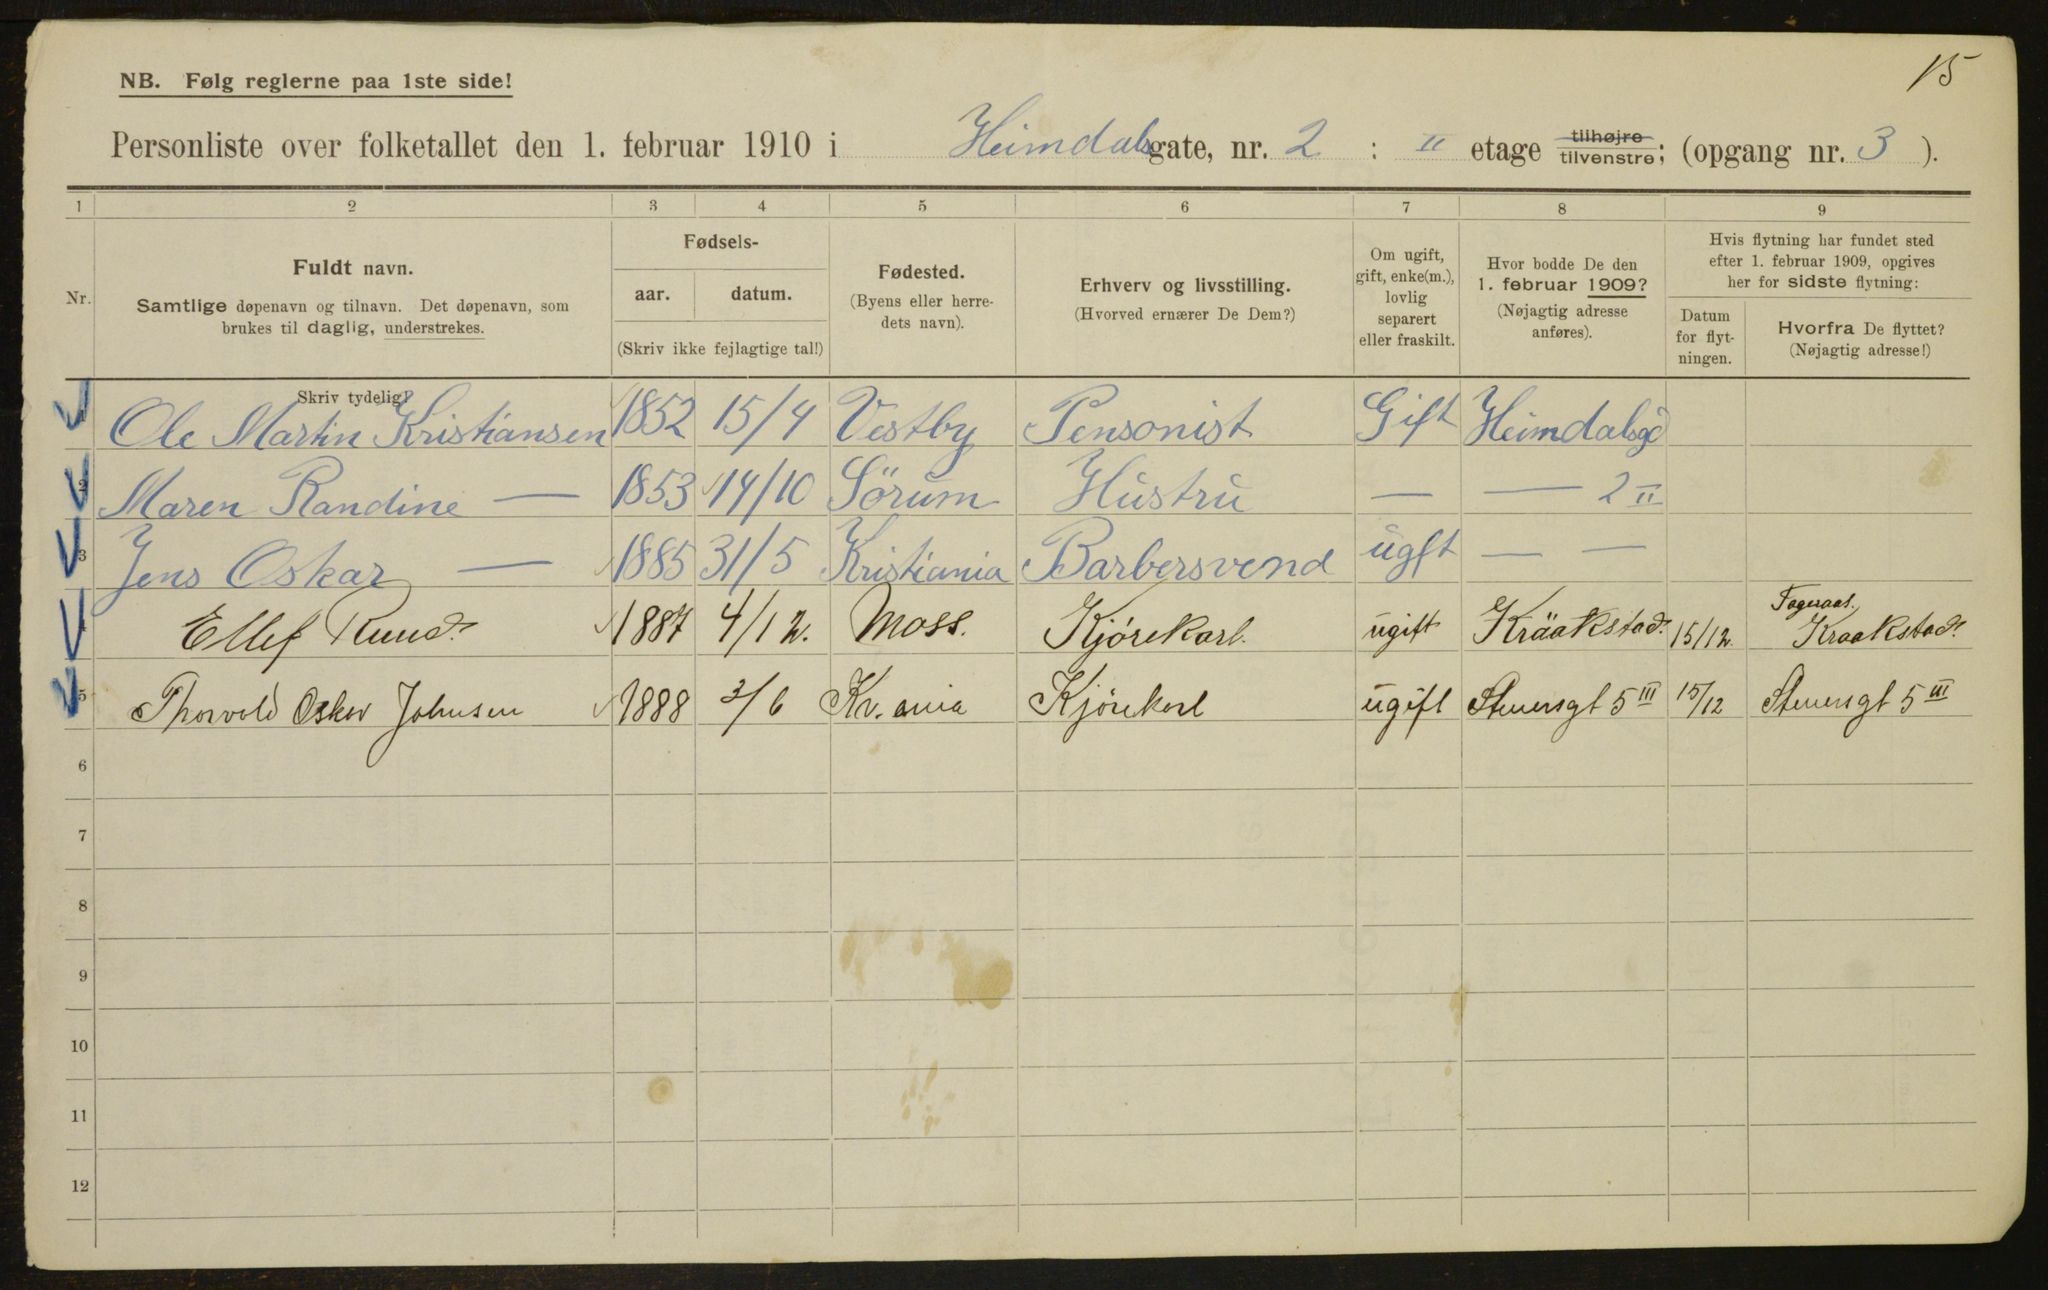 15
NB. Følg reglerne paa 1ste side!
Personliste over folketallet den 1. februar 1910 i Heimdalsgate, nr. 2 : II etage tilhøjre tilvenstre; (opgang nr. 3 ).
1 2 3 4 5 6 7 8 9
Nr.
Fuldt navn.
Samtlige døpenavn og tilnavn. Det døpenavn, som
brukes til daglig, understrekes.
Skriv tydelig!
Fødsels-
aar. datum.
(Skriv ikke fejlagtige tal!)
Fødested.
(Byens eller herre-
dets navn).
Erhverv og livsstilling.
(Hvorved ernærer De Dem?)
Om ugift,
gift, enke(m.),
lovlig
separert
eller fraskilt.
Hvor bodde De den
1. februar 1909?
(Nøjagtig adresse
anføres).
Hvis flytning har fundet sted
efter 1. februar 1909, opgives
her for sidste flytning:
Datum
for flyt-
ningen.
Hvorfra De flyttet?
(Nøjagtig adresse!)
1 Ole Martin Kristiansen 1852 15/4 Vestby Pensonist Gift Heimdalsgd
2 Maren Randine — 1853 14/10 Sörum Hustru — — 2 II
3 Jens Oskar — 1885 31/5 Kristiania Barbersvend ugft — —
4 Ellef Ruud. 1887 4/12. Moss. Kjórekarl. ugift Kräakstad. 15/12. Kraakstad.
5 Thorvold Oskar Johnsen 1888 2/6 Kr.ania Kjörekarl ugift 5 III 15/12 5 III
6
7
8
9
10
11
12